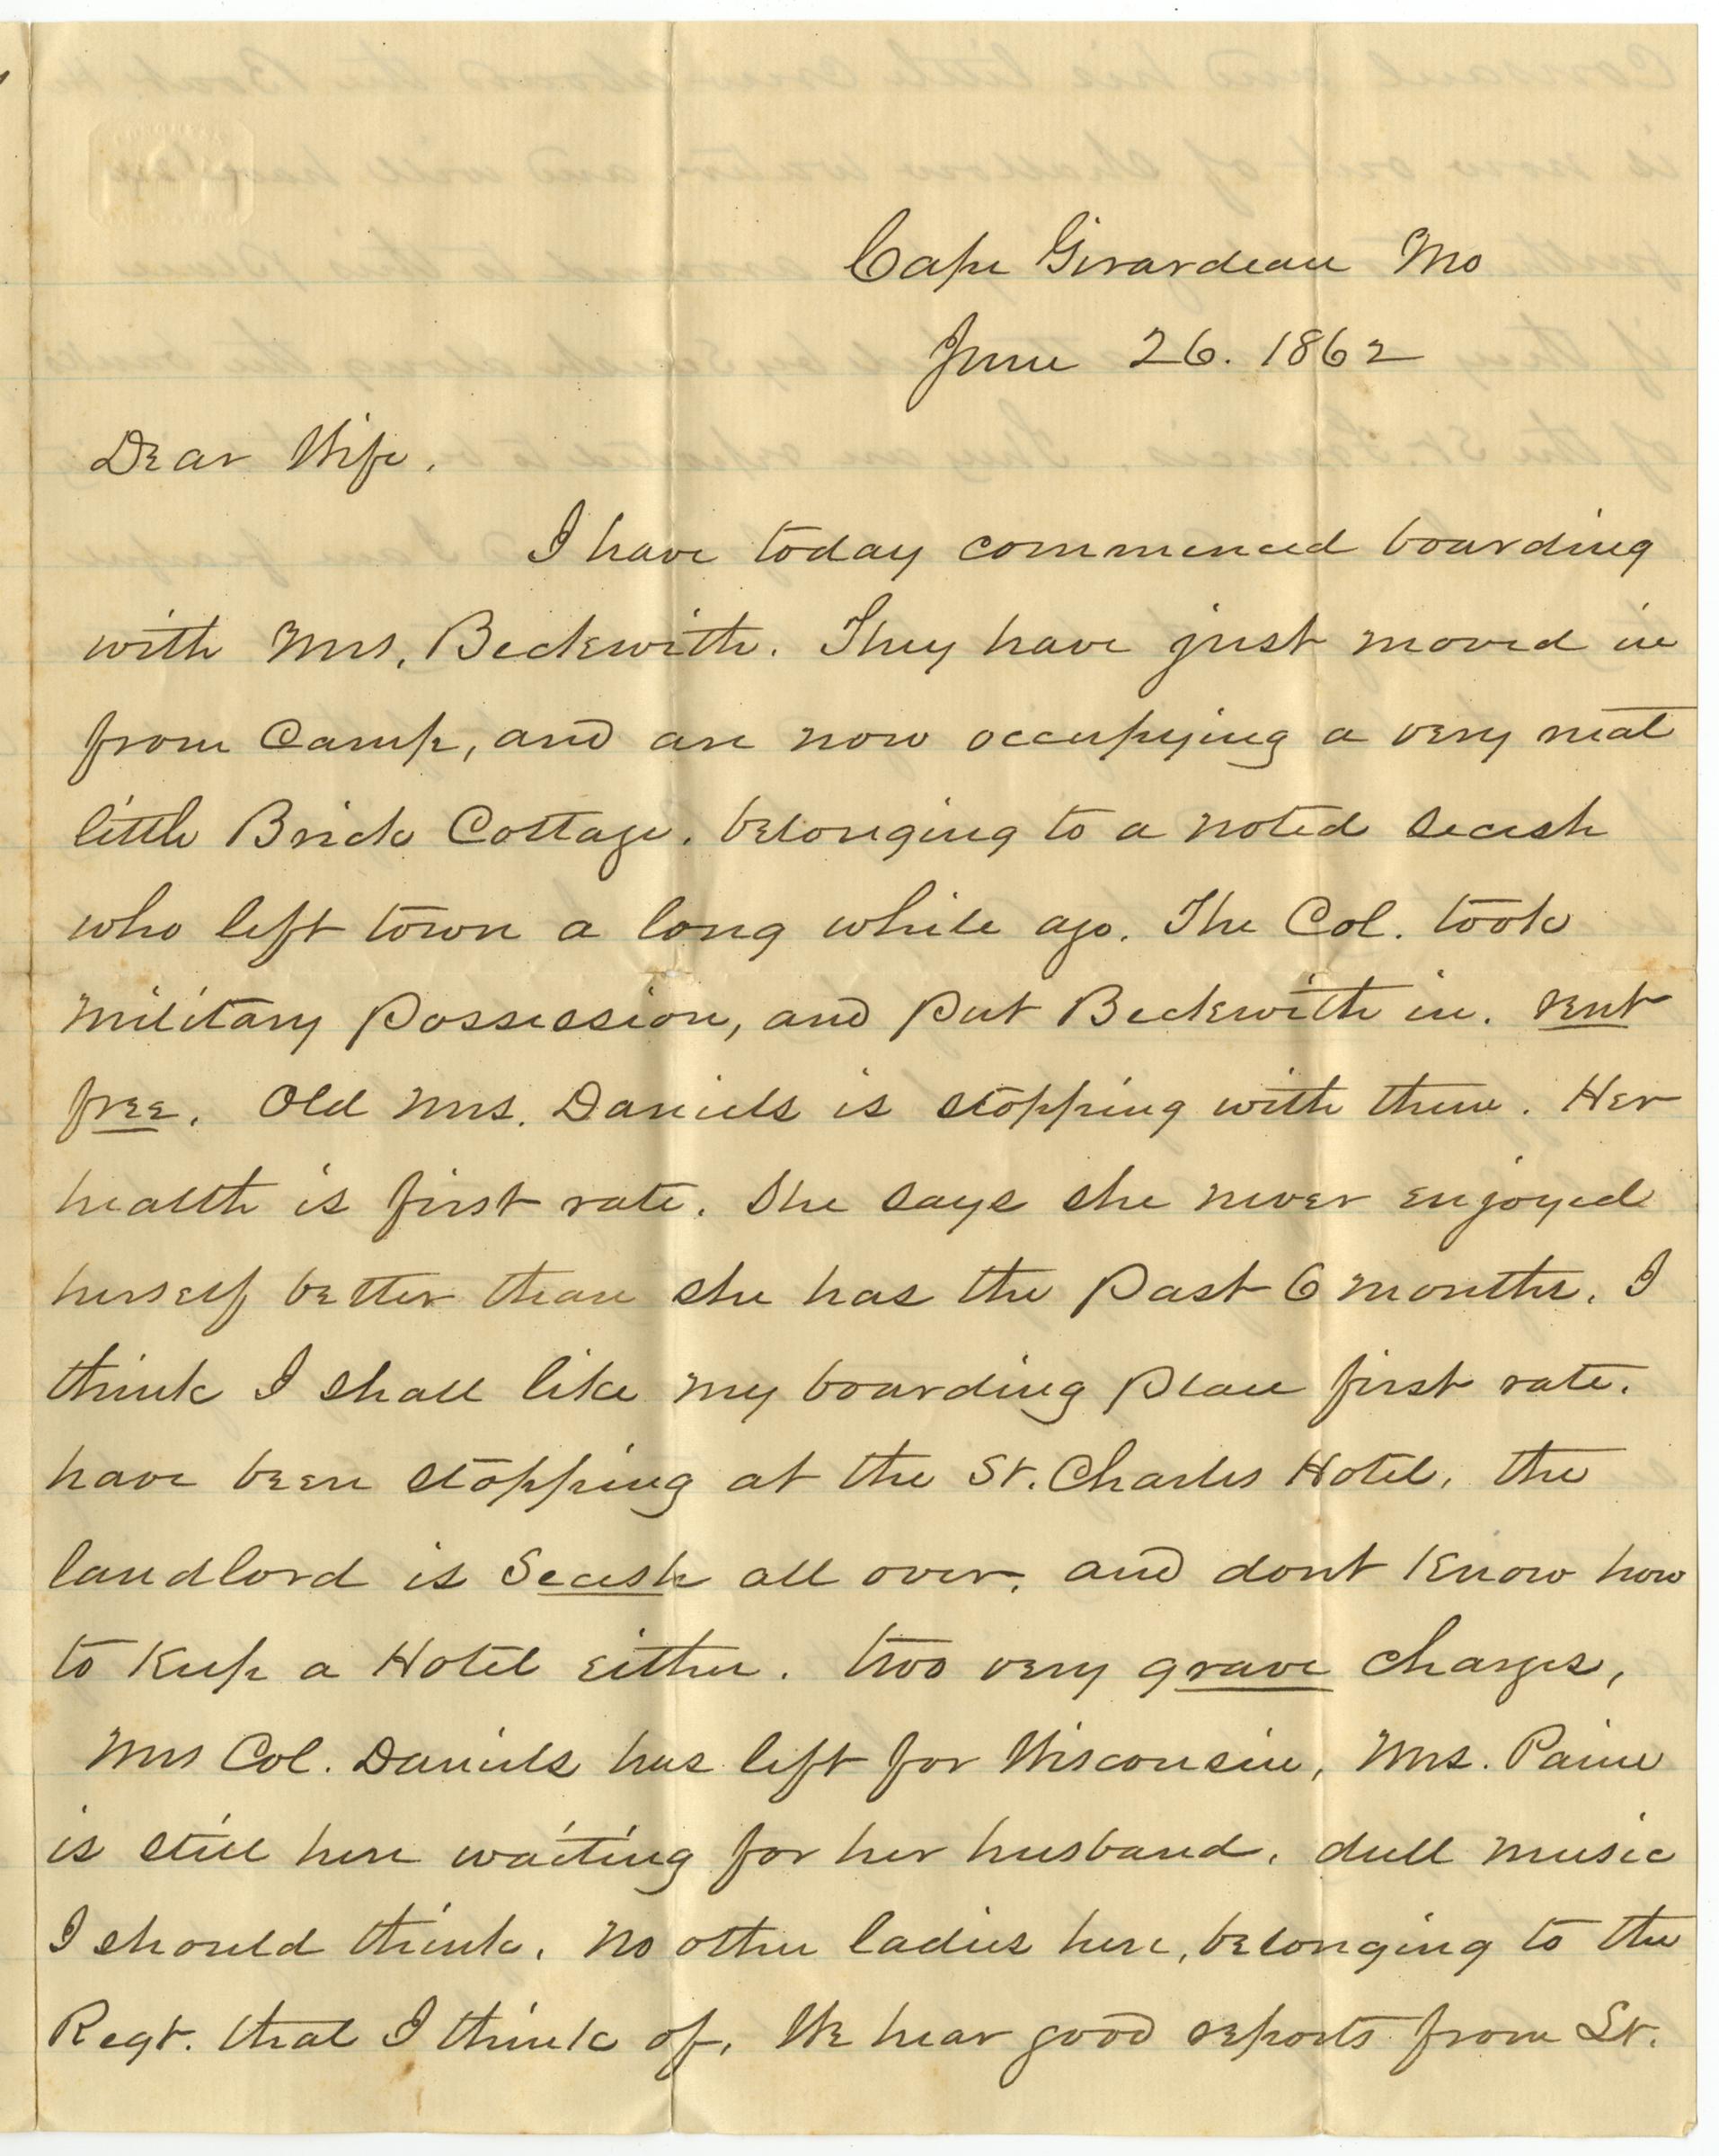 Cape Girardeau Mo
June 26. 1862
Dear Wife.
I have today commenced boarding
with Mrs, Beckwith. They have just moved in
from Camp, and are now occupying a very neat
little Brick Cottage. belonging to a noted secesh
who left town a long while ago. The Col. took
Military possession, and put Beckwith in. rent
free. Old Mrs. Daniels is stopping with them. Her
health is first rate. She says she never enjoyed
herself better than she has the past 6 months. I
think I shall like my boarding place first rate.
have been stopping at the St. Charles Hotel. the
landlord is Secesh all over. and dont know how
to keep a Hotel either. two very grave charges,
Mrs Col. Daniels has left for Wisconsin, Mrs. Paine
is still here waiting for her husband. dull music
I should think. No other ladies here, belonging to the
Regt. that I think of. We hear good reports from Lt.